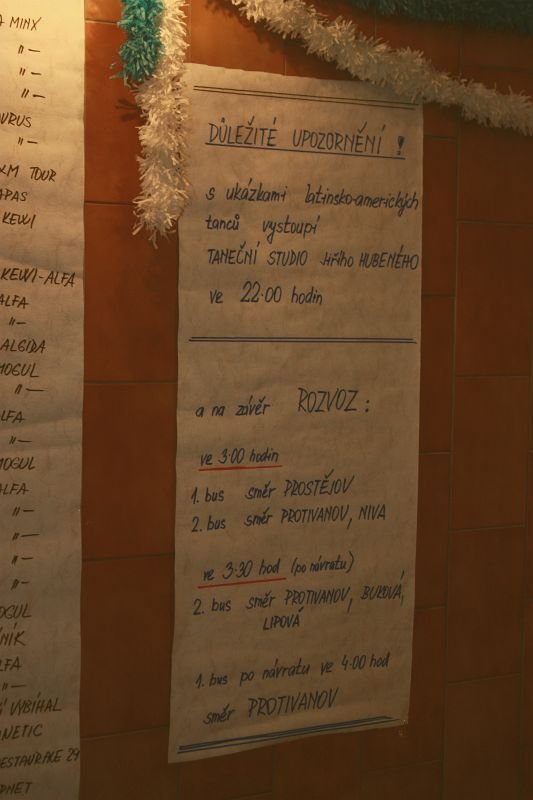 MINX
〃—
〃—
〃—
〃—
TOUR
KEWI
KEWI-ALFA
ALFA
〃—
ALGIDA
MOGUL
〃—
ALFA
〃—
MOGUL
ALFA
〃—
〃—
〃—
〃—
MOGUL
ALFA
〃—
VYBÍHAL
DŮLEŽITÉ UPOZORNĚNÍ !
s ukázkami latinsko-amerických
tanců vystoupí
TANEČNÍ STUDIO Jiřího HUBENÉHO
ve 22.00 hodin
a na závěr ROZVOZ :
ve 3.00 hodin
1. bus směr PROSTĚJOV
2. bus směr PROTIVANOV, NIVA
ve 3.30 hod (po návratu)
2. bus směr PROTIVANOV, BUKOVÁ,
LIPOVÁ
1. bus po návratu ve 4.00 hod
směr PROTIVANOV